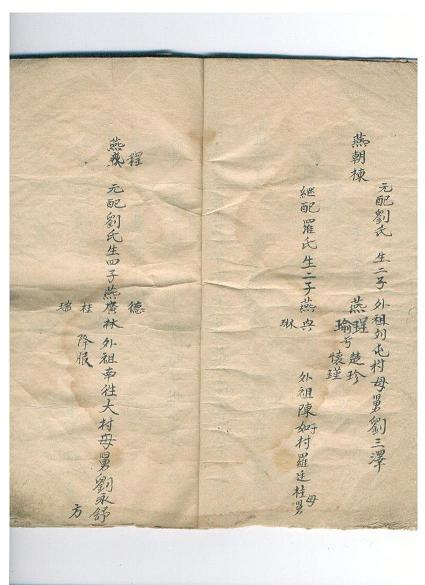 燕朝棟
元配劉氏 生二子 外祖列屯村母舅劉三澤
燕瑾 楚珍
瑜号懷瑾
継配羅氏生二子燕典 外祖陳如村羅廷桂
琳
于
母舅
燕 程
元配劉氏生四子燕廣林 外祖南性大村母舅劉永舒
德
桂
瑞
降服
方